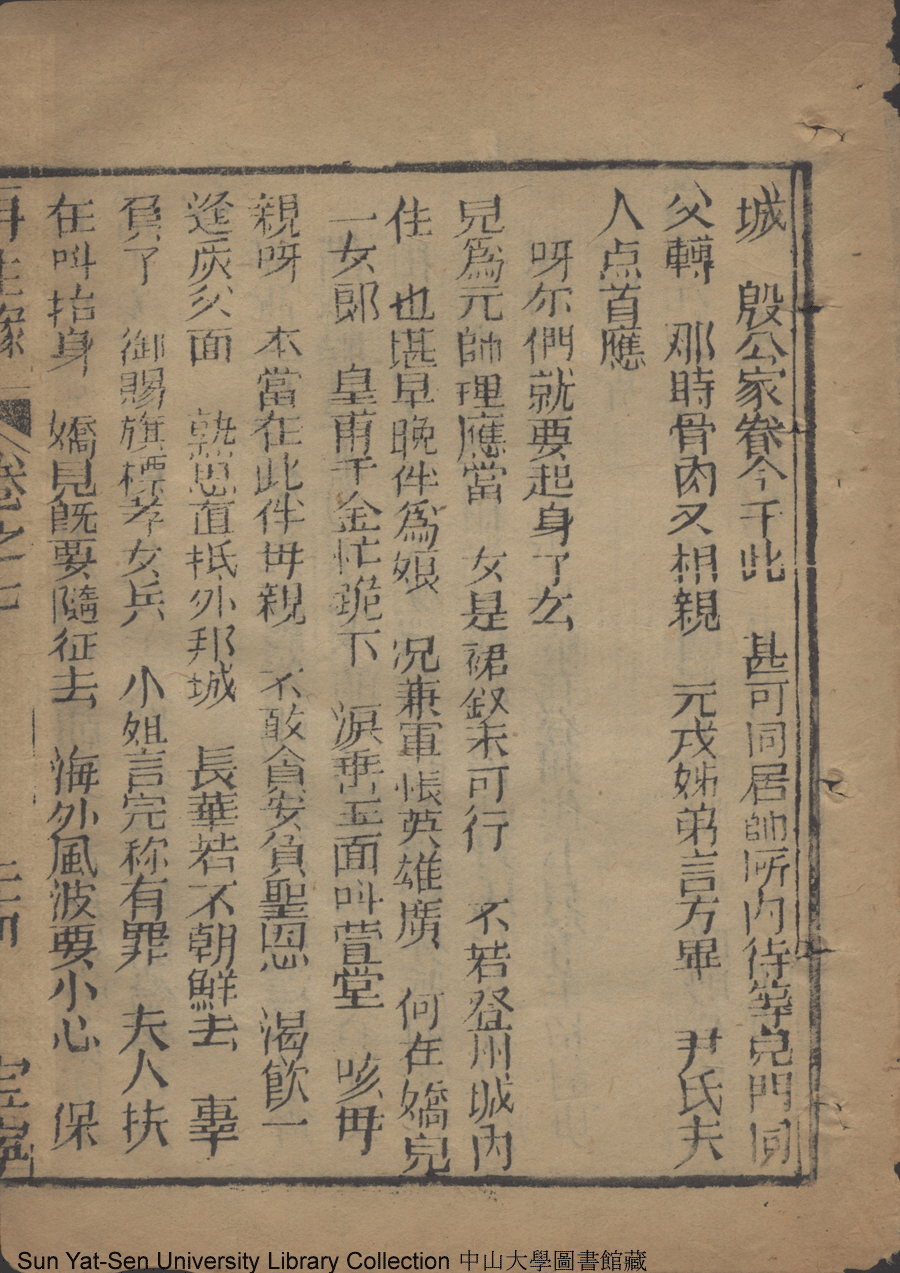 城　殷公家眷今于此　甚可同居帥府內待等皃門同
父轉　那時骨肉又相親　元戎姊弟言方畢　尹氏夫
人点首應
呀尔們就要起身了么
兒爲元帥理應當　女是裙釵未可行　不若登州城內
住　也堪早晚伴爲娘　况兼軍帳英雄廣　何在嬌皃
一女郎　皇甫千金忙跪下　淚垂玉面叫萱堂　咳毋
親呀　本當在此伴毋親　不敢貪安負聖恩　渴飲一
逢灰父面　就思直抵外邦城　長華若不朝鮮去　辜
負了　御賜旗標孝女兵　小姐言完称有罪　夫人扶
在叫抬身　嬌見旣要隨征去　海外風波要小心　保
再生緣　卷之七
Sun Yat-Sen University Library Collection 中山大學圖書館藏